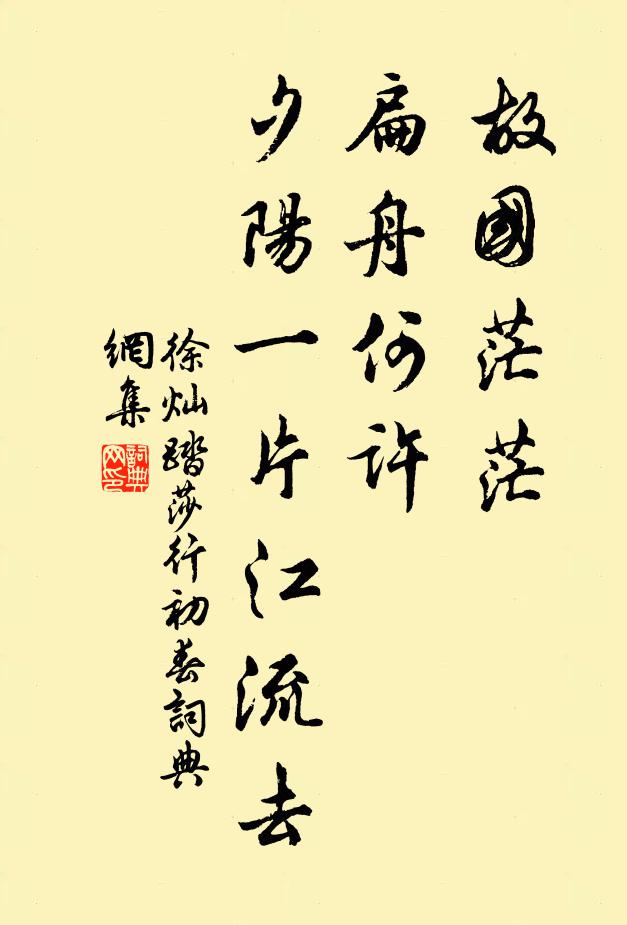 故國茫茫
扁舟何許
夕陽一片江流去
徐灿踏莎行初春詞典
網集
詞典網印